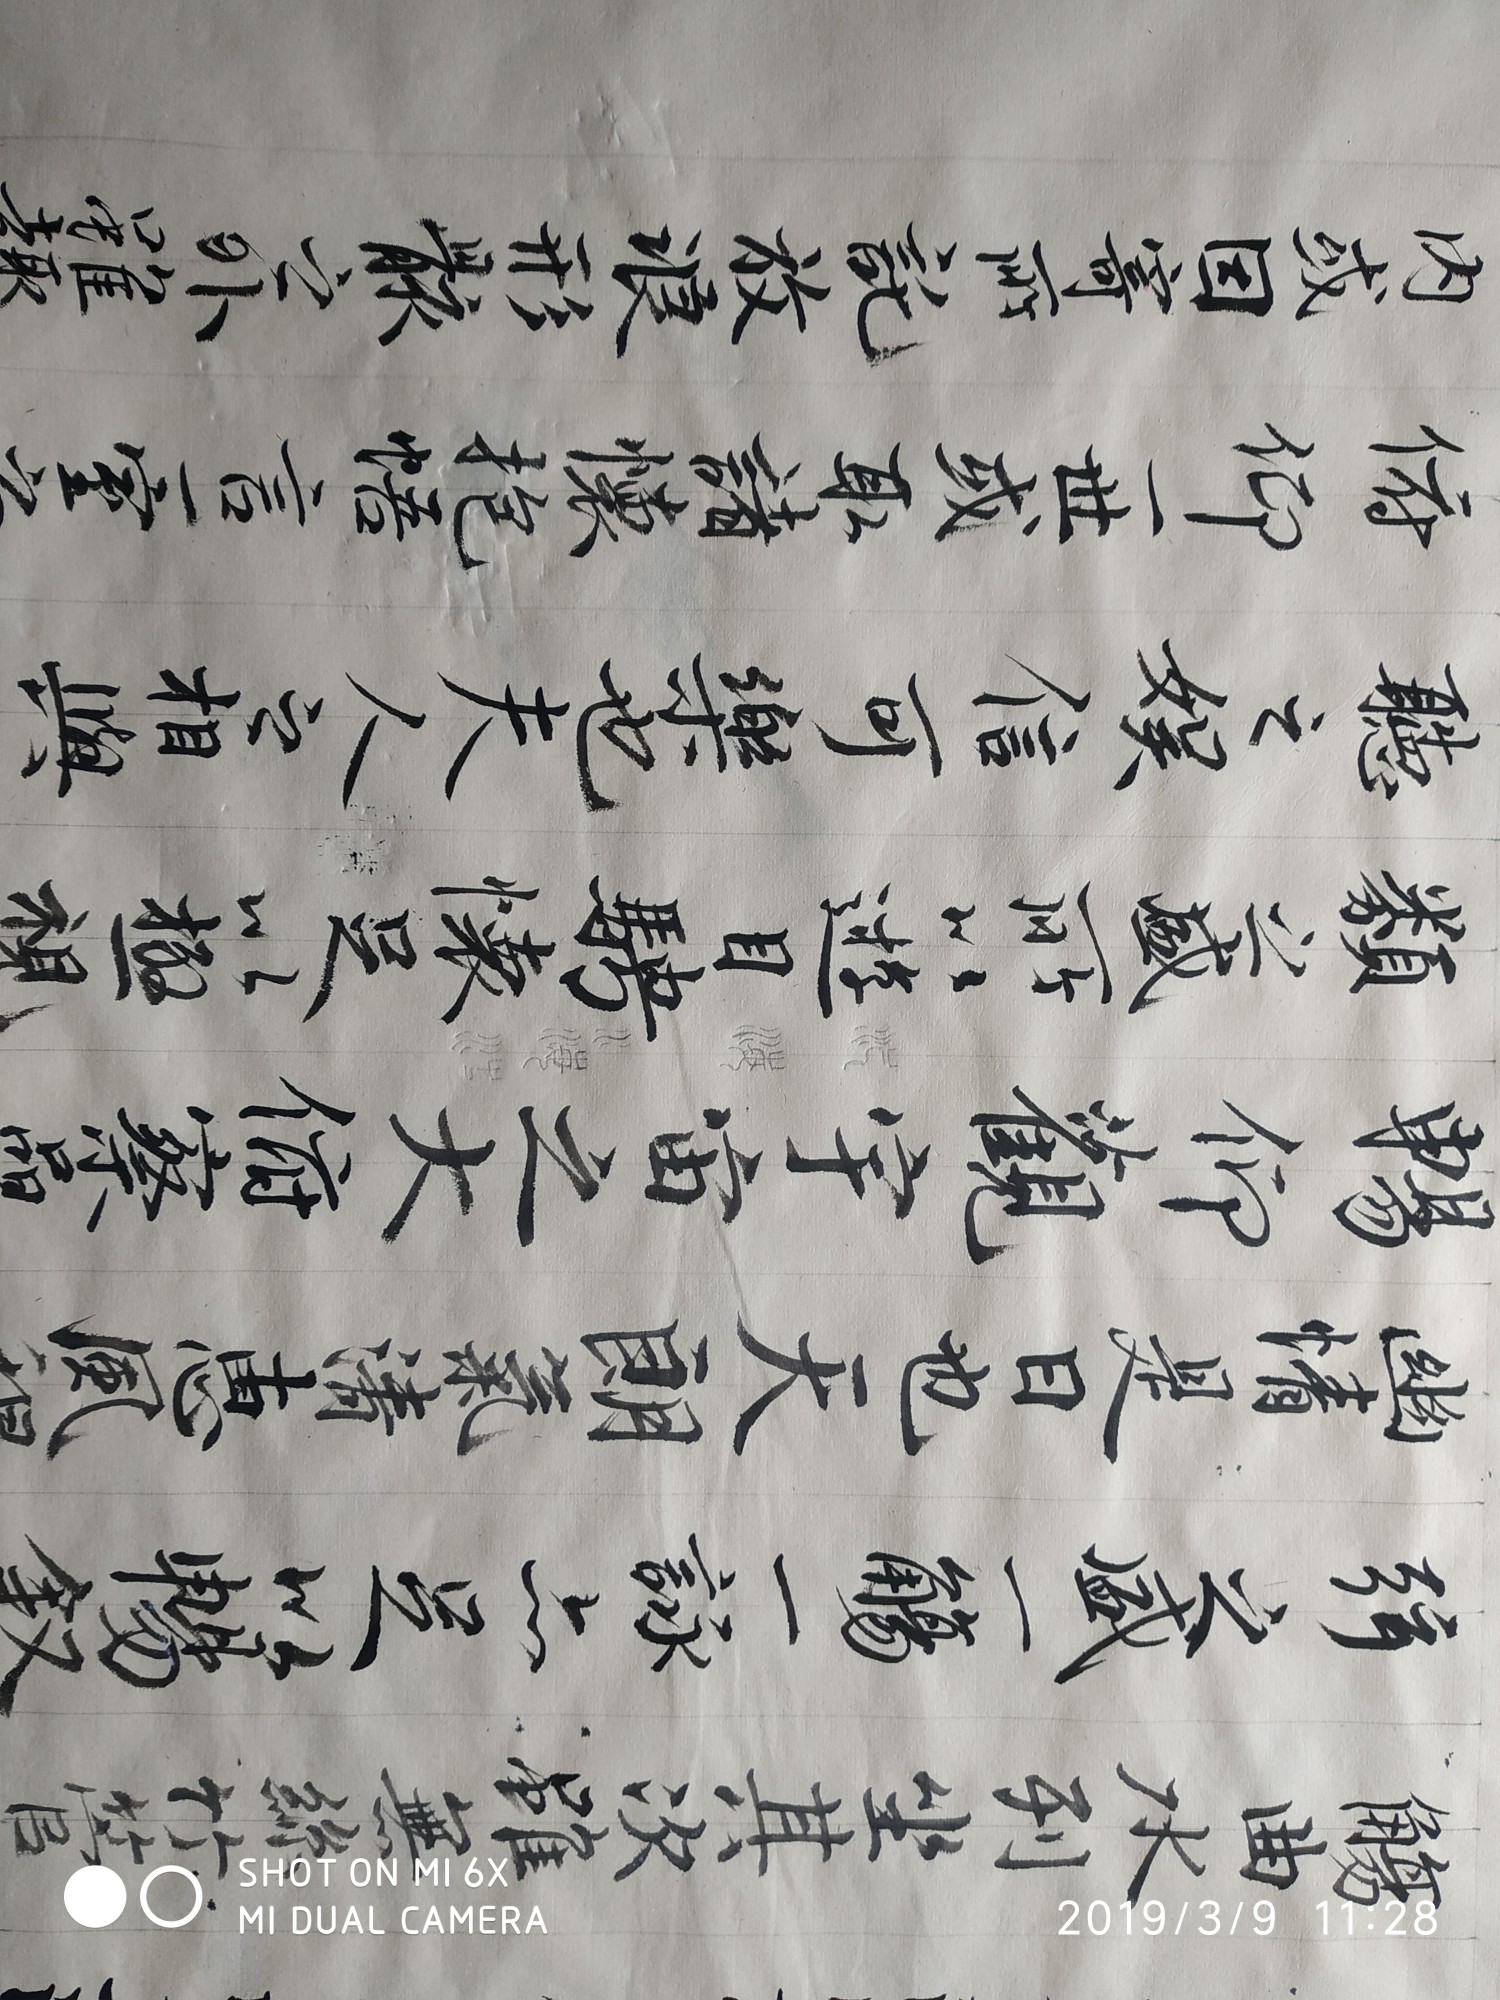 觴曲水列坐其次雖無絲竹管
弦之盛一觴一詠亦足以暢敘
幽情是日也天朗氣清惠風和
暢仰觀宇宙之大俯察品
類之盛所以遊目騁懷足以極視
聽之娛信可樂也夫人之相與
俯仰一世或取諸懷抱悟言一室之
內或因寄所託放浪形骸之外雖趣
SHOT ON MI 6X
MI DUAL CAMERA
2019/3/9 11:28